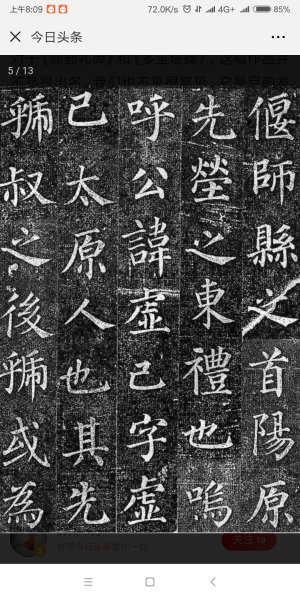 上午8:09 72.0K/s 4G+ 85%
今日头条
5 / 13
偃師縣之首陽原
先塋之東禮也嗚
呼公諱虛己字虛
己太原人也其先
虢叔之後虢或為
关注ta